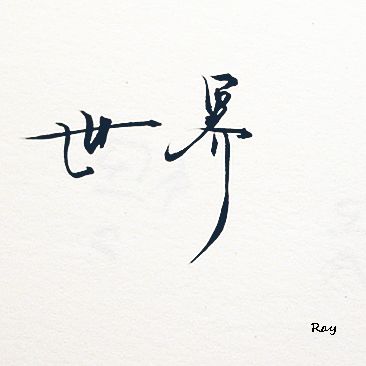 世界
Ray